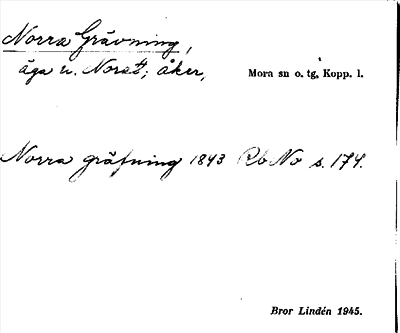 Norra Grävning,
äga u. Norat; åker,
Mora sn o. tg, Kopp. l.
Norra gräfning 1843 Rb No s. 174.
Bror Lindén 1945.